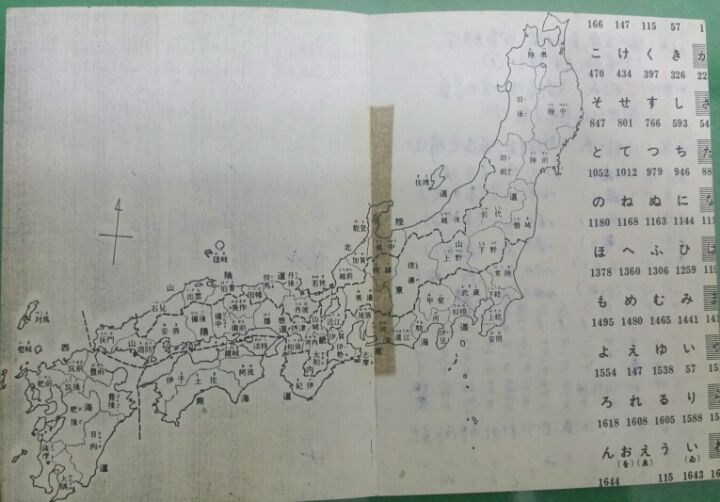 166 147 115 57 1
こ け く き か
470 434 397 326 22
そ せ す し さ
847 801 766 593 54
と て つ ち た
1052 1012 979 946 88
の ね ぬ に な
1180 1168 1163 1144 11
ほ へ ふ ひ は
1378 1360 1306 1259 119
も め む み ま
1495 1480 1465 1441 141
よ え ゆ い や
1554 147 1538 57 15
ろ れ る り ら
1618 1608 1605 1588 15
ん お え う い わ
(を) (ゑ) (ゐ)
1644 115 1643 16
陸奥
羽後
陸中
羽前
陸前
佐渡
越後
岩代
磐城
能登
越中
加賀
越前
北
陸
道
山
道
上野
下野
常陸
武蔵
下総
上総
安房
相模
甲斐
駿河
伊豆
遠江
東
海
道
隠岐
山
陰
道
石見
出雲
伯耆
因幡
但馬
丹後
若狭
丹波
美作
備後
備中
備前
安芸
周防
長門
山
陽
道
山城
近江
大和
河内
伊勢
志摩
紀伊
淡路
讃岐
阿波
伊予
土佐
南
海
道
対馬
壱岐
西
海
道
筑前
豊前
肥前
筑後
豊後
肥後
日向
薩摩
大隅